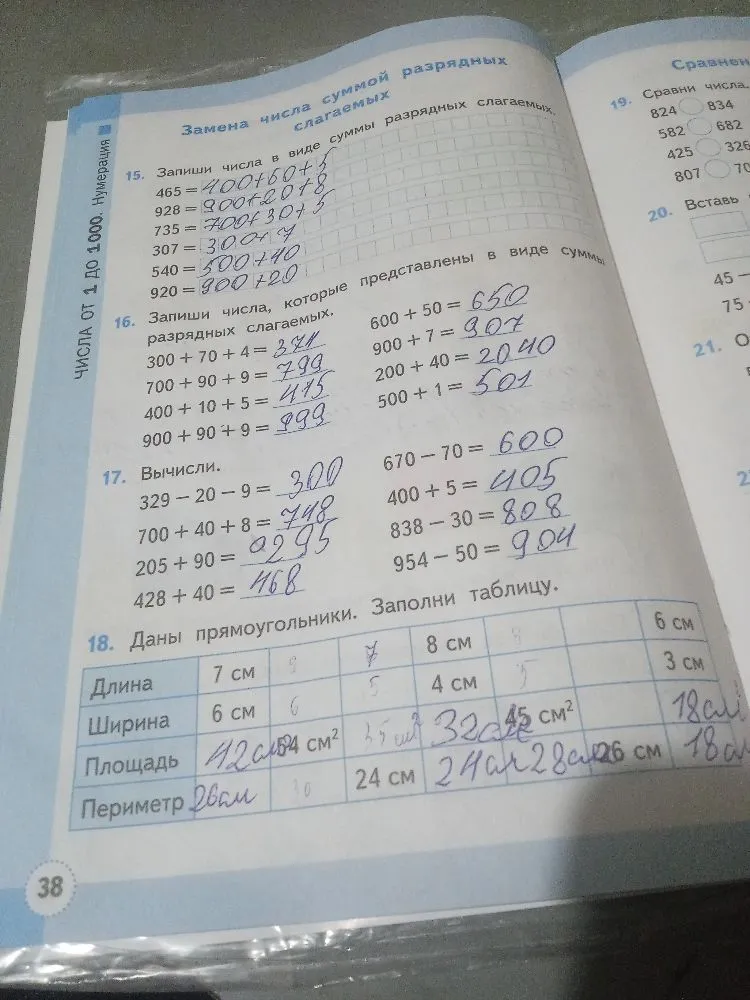 Замена числа суммой разрядных
слагаемых
15. Запиши числа в виде суммы разрядных слагаемых.
465 = 400+60+5
928 = 900+20+8
735 = 700+30+5
307 = 300+7
540 = 500+40
920 = 900+20
16. Запиши числа, которые представлены в виде суммы
разрядных слагаемых.
300 + 70 + 4 = 374
700 + 90 + 9 = 799
400 + 10 + 5 = 415
900 + 90 + 9 = 999
600 + 50 = 650
900 + 7 = 907
200 + 40 = 2040
500 + 1 = 501
17. Вычисли.
329 − 20 − 9 = 300
700 + 40 + 8 = 748
205 + 90 = 295
428 + 40 = 468
670 − 70 = 600
400 + 5 = 405
838 − 30 = 808
954 − 50 = 904
18. Даны прямоугольники. Заполни таблицу.
Длина 7 см 9 7 8 см 6 см
Ширина 6 см 6 5 4 см 5 3 см
Площадь 42см² 54 см² 35 см² 32см² 45 см² 18см
Периметр 26см 30 24 см 24см 28см 26 см 18см
38
ЧИСЛА ОТ 1 ДО 1000. Нумерация
Сравнен
19. Сравни числа.
824 834
582 682
425 326
807 70
20. Вставь
45 −
75
21. О